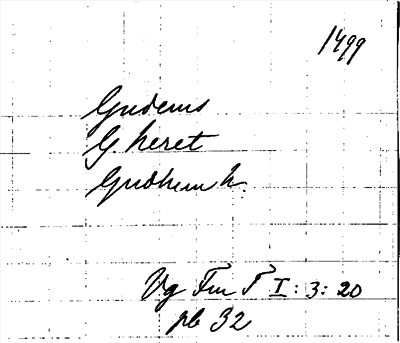 1499
Gudems
G. heret
Gudhem h.
Vg Fm T I: 3: 20
pb 32